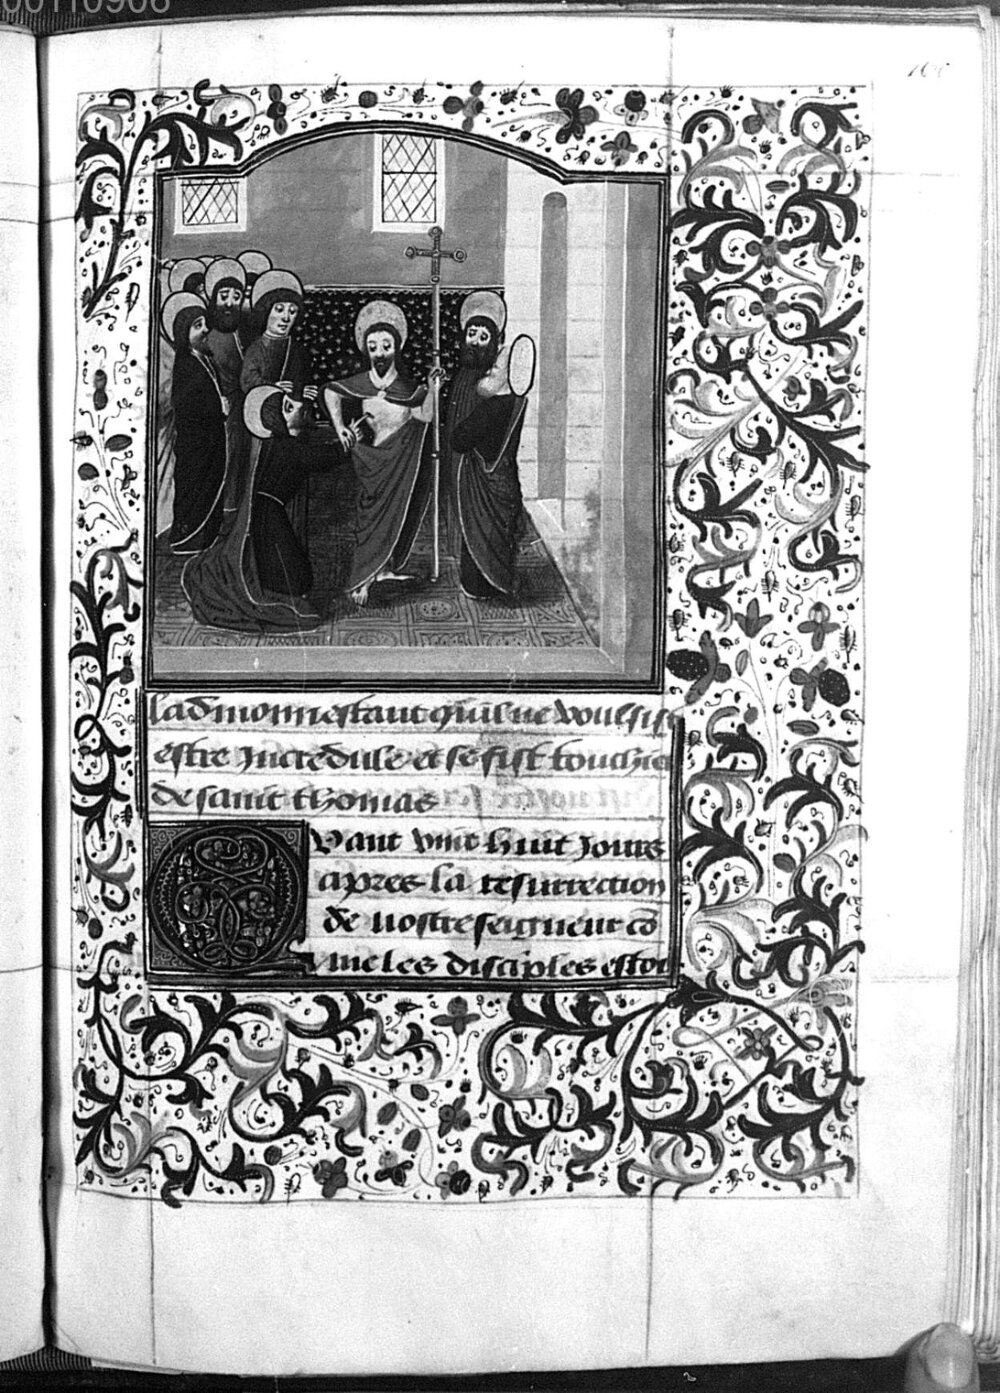 00110908
165
ladmonnestant quil ne voulsist
estre Incredule et se fist touchier
de saint thomas
Quant vint huit Jours
apres la resurrection
de nostre seigneur cō
me les disciples estoi